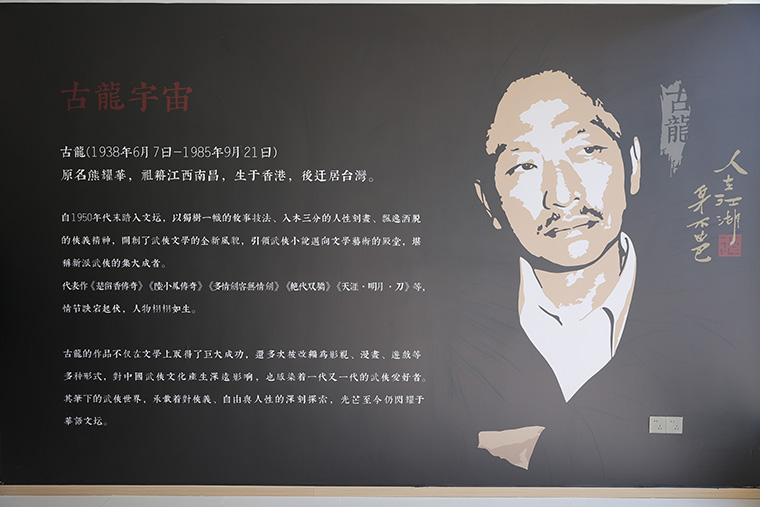 古龍宇宙
古龍(1938年6月7日-1985年9月21日)
原名熊耀華，祖籍江西南昌，生于香港，後迁居台灣。
自1950年代末踏入文坛，以獨樹一幟的敘事技法、入木三分的人性刻畫、飄逸洒脱
的俠義精神，開創了武俠文學的全新風貌，引領武俠小說邁向文學藝術的殿堂，堪
稱新派武俠的集大成者。
代表作《楚留香傳奇》《陸小鳳傳奇》《多情劍客無情劍》《絶代双驕》《天涯·明月·刀》等，
情节跌宕起伏，人物栩栩如生。
古龍的作品不仅在文學上取得了巨大成功，還多次被改編為影視、漫畫、遊戲等
多种形式，對中國武俠文化產生深遠影响，也感染着一代又一代的武俠愛好者。
其筆下的武俠世界，承載着對俠義、自由與人性的深刻探索，光芒至今仍閃耀于
華語文坛。
古龍
人在江湖
身不由